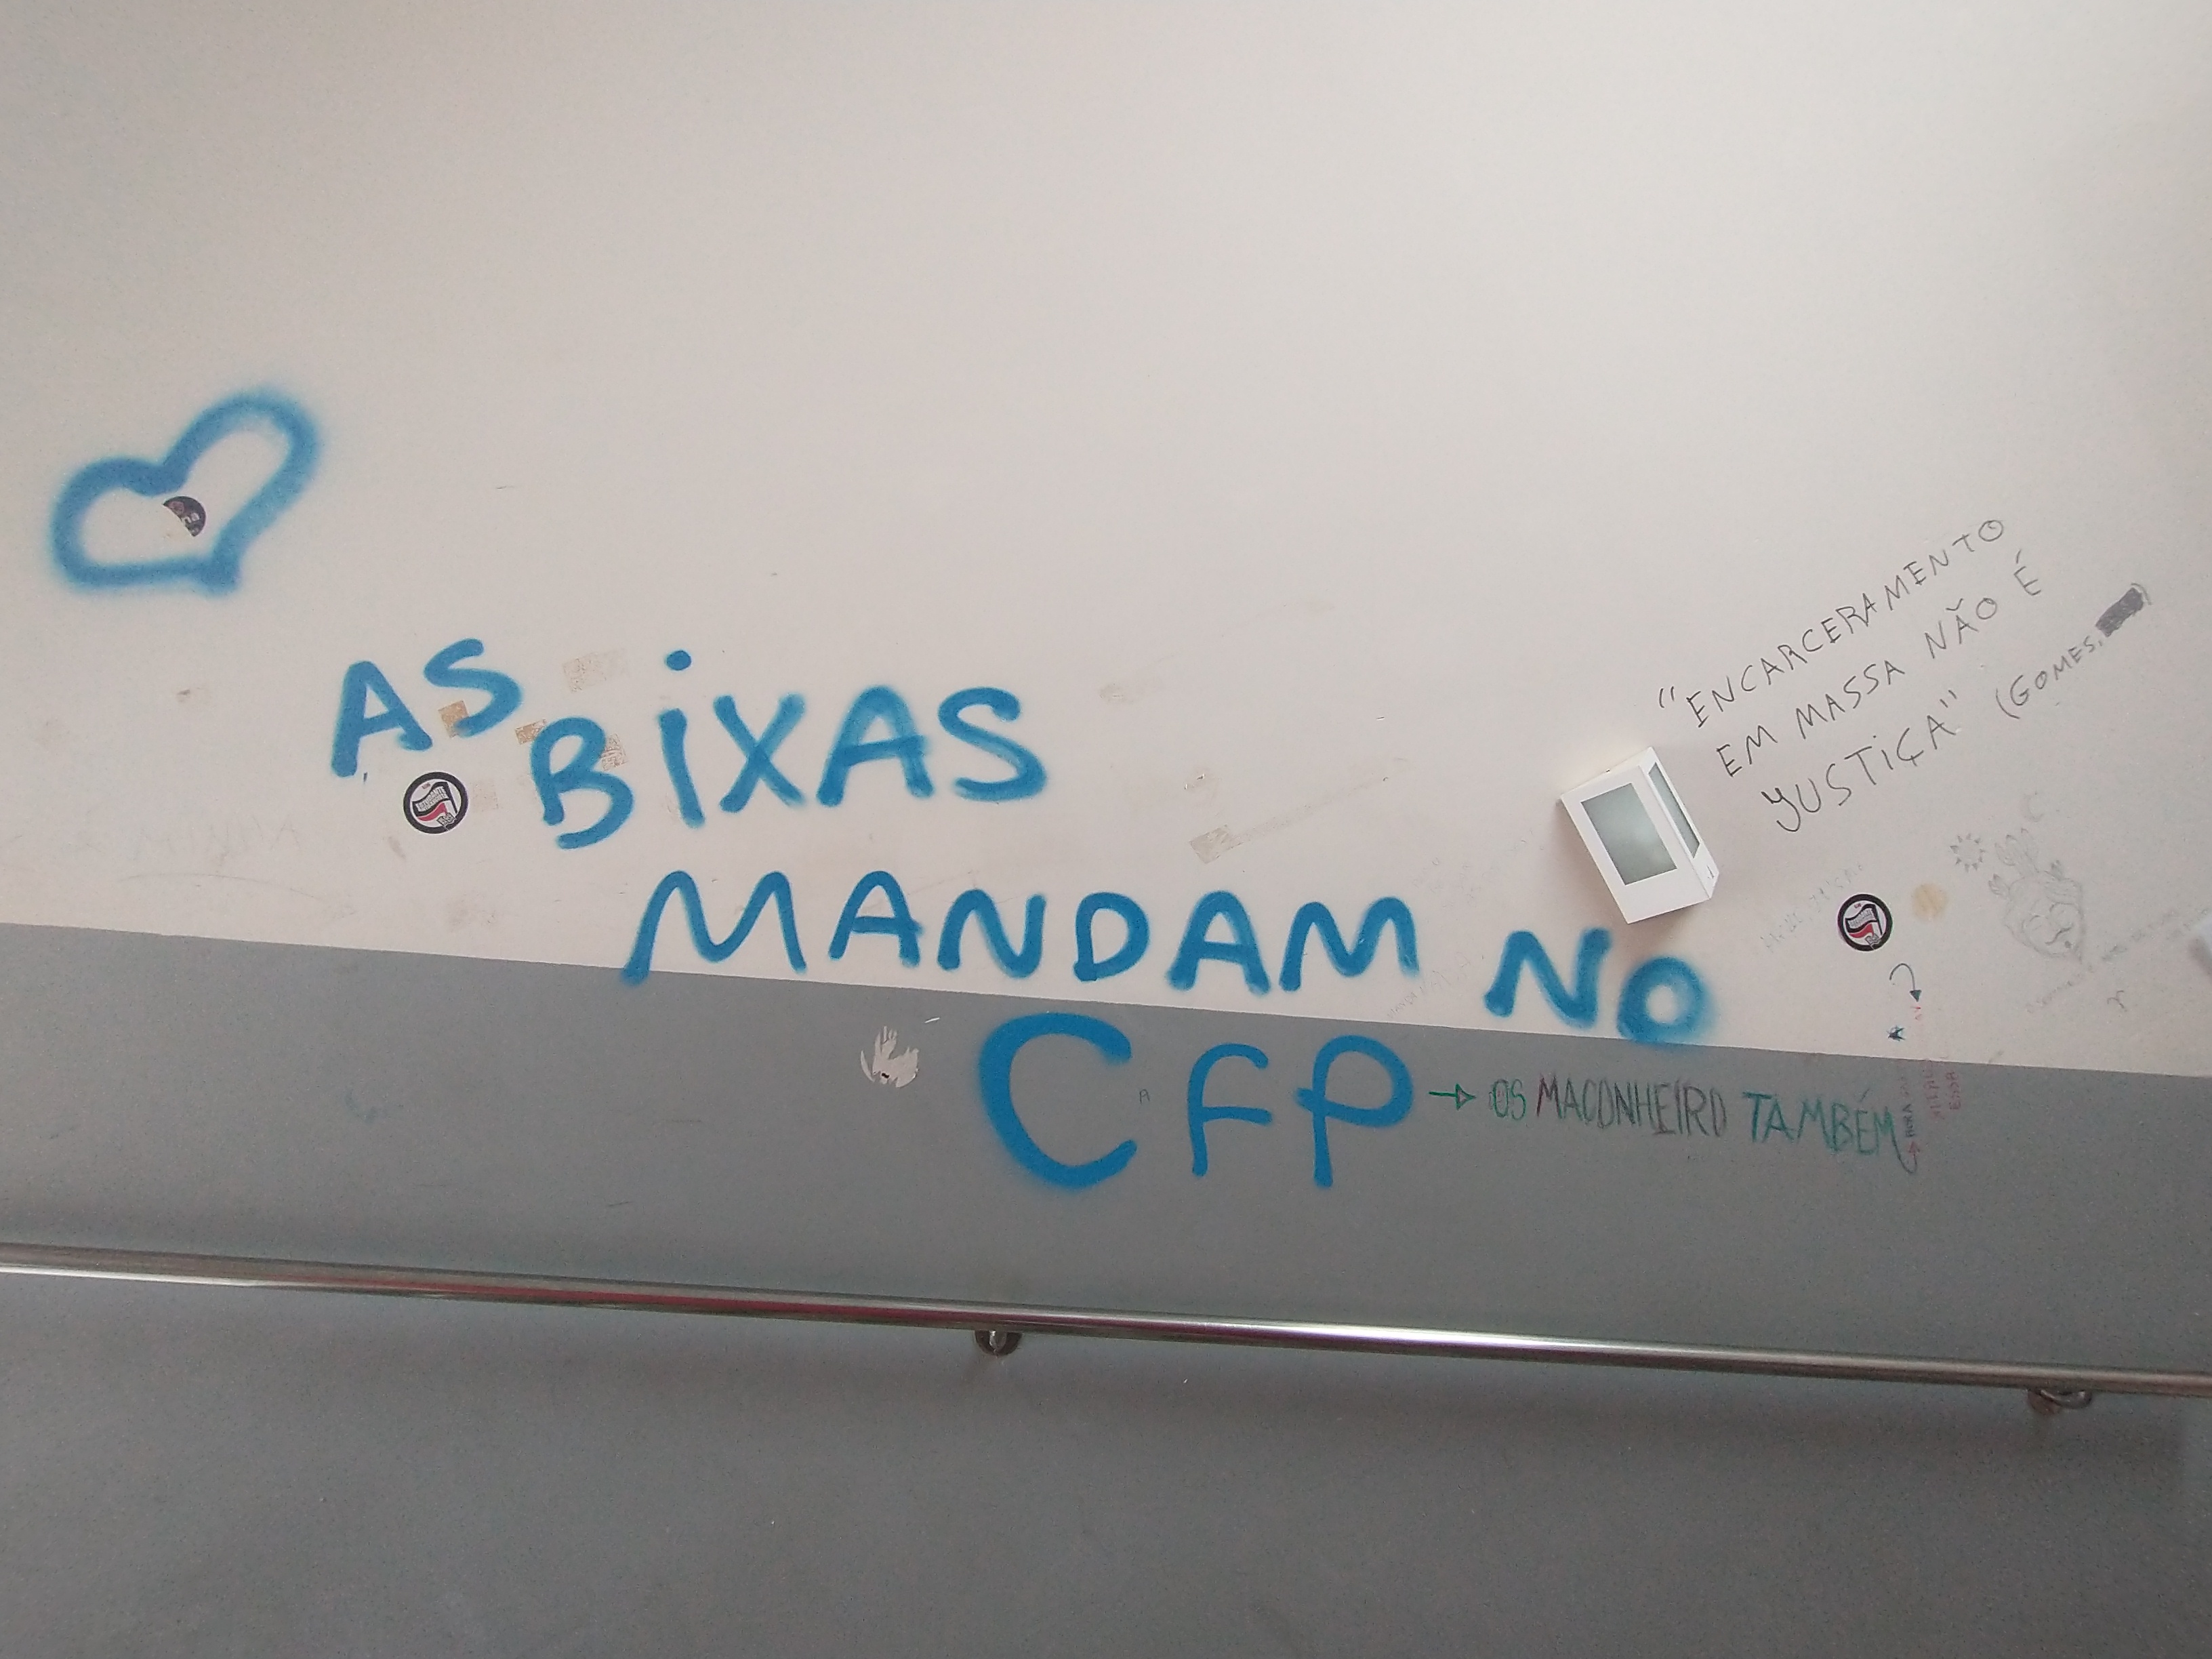 AS
BIXAS
MANDAM NO
CFP
→ OS MACONHEIRO TAMBÉM
"ENCARCERAMENTO
EM MASSA NÃO É
JUSTIÇA" (GOMES,